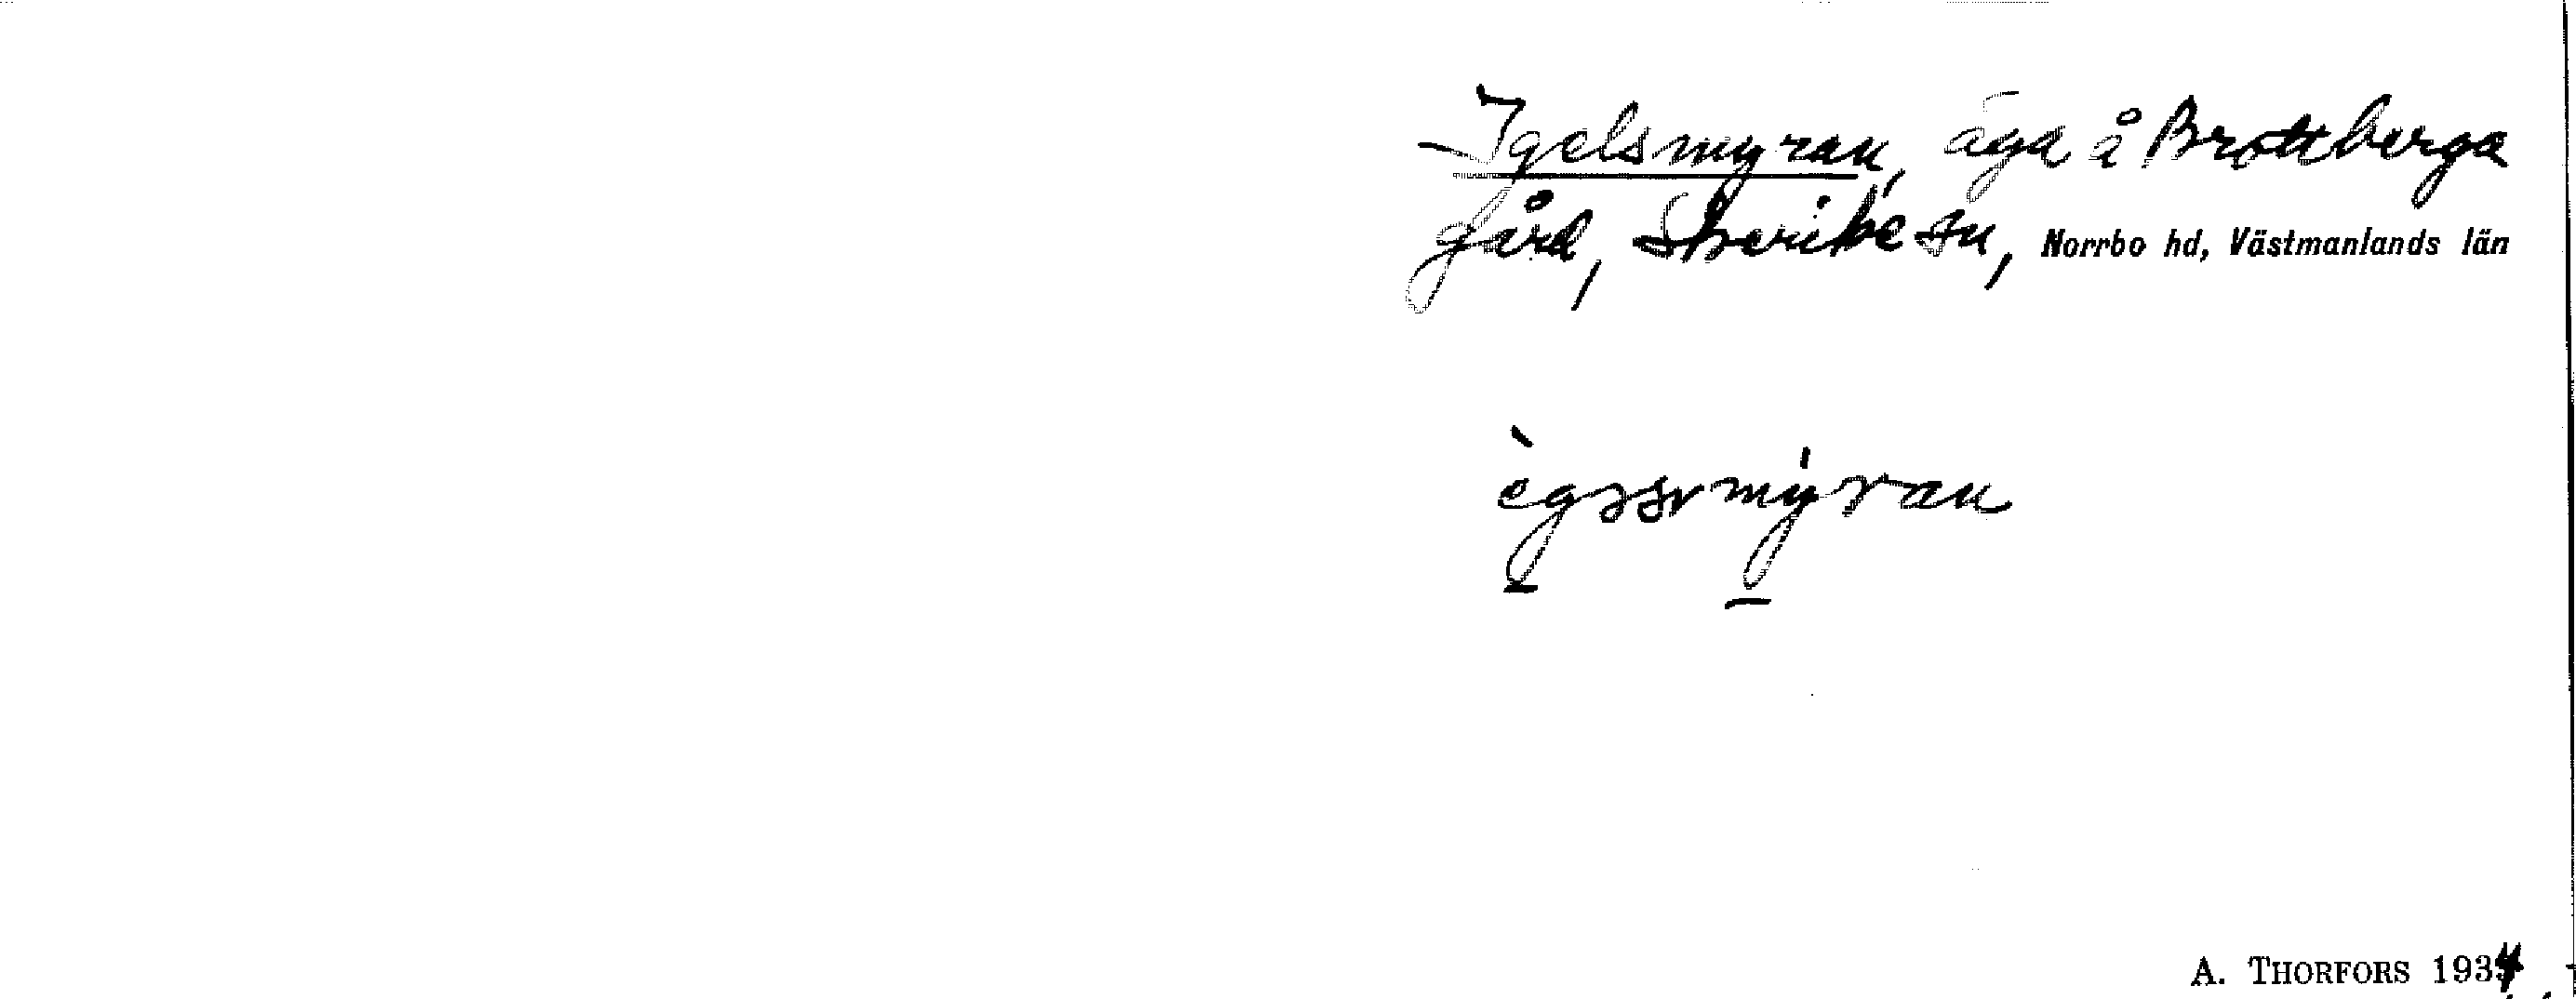 Igelsmyran, äga å Brottberga
gård, Skerike sn, Norrbo hd, Västmanlands län
A. THORFORS 1934